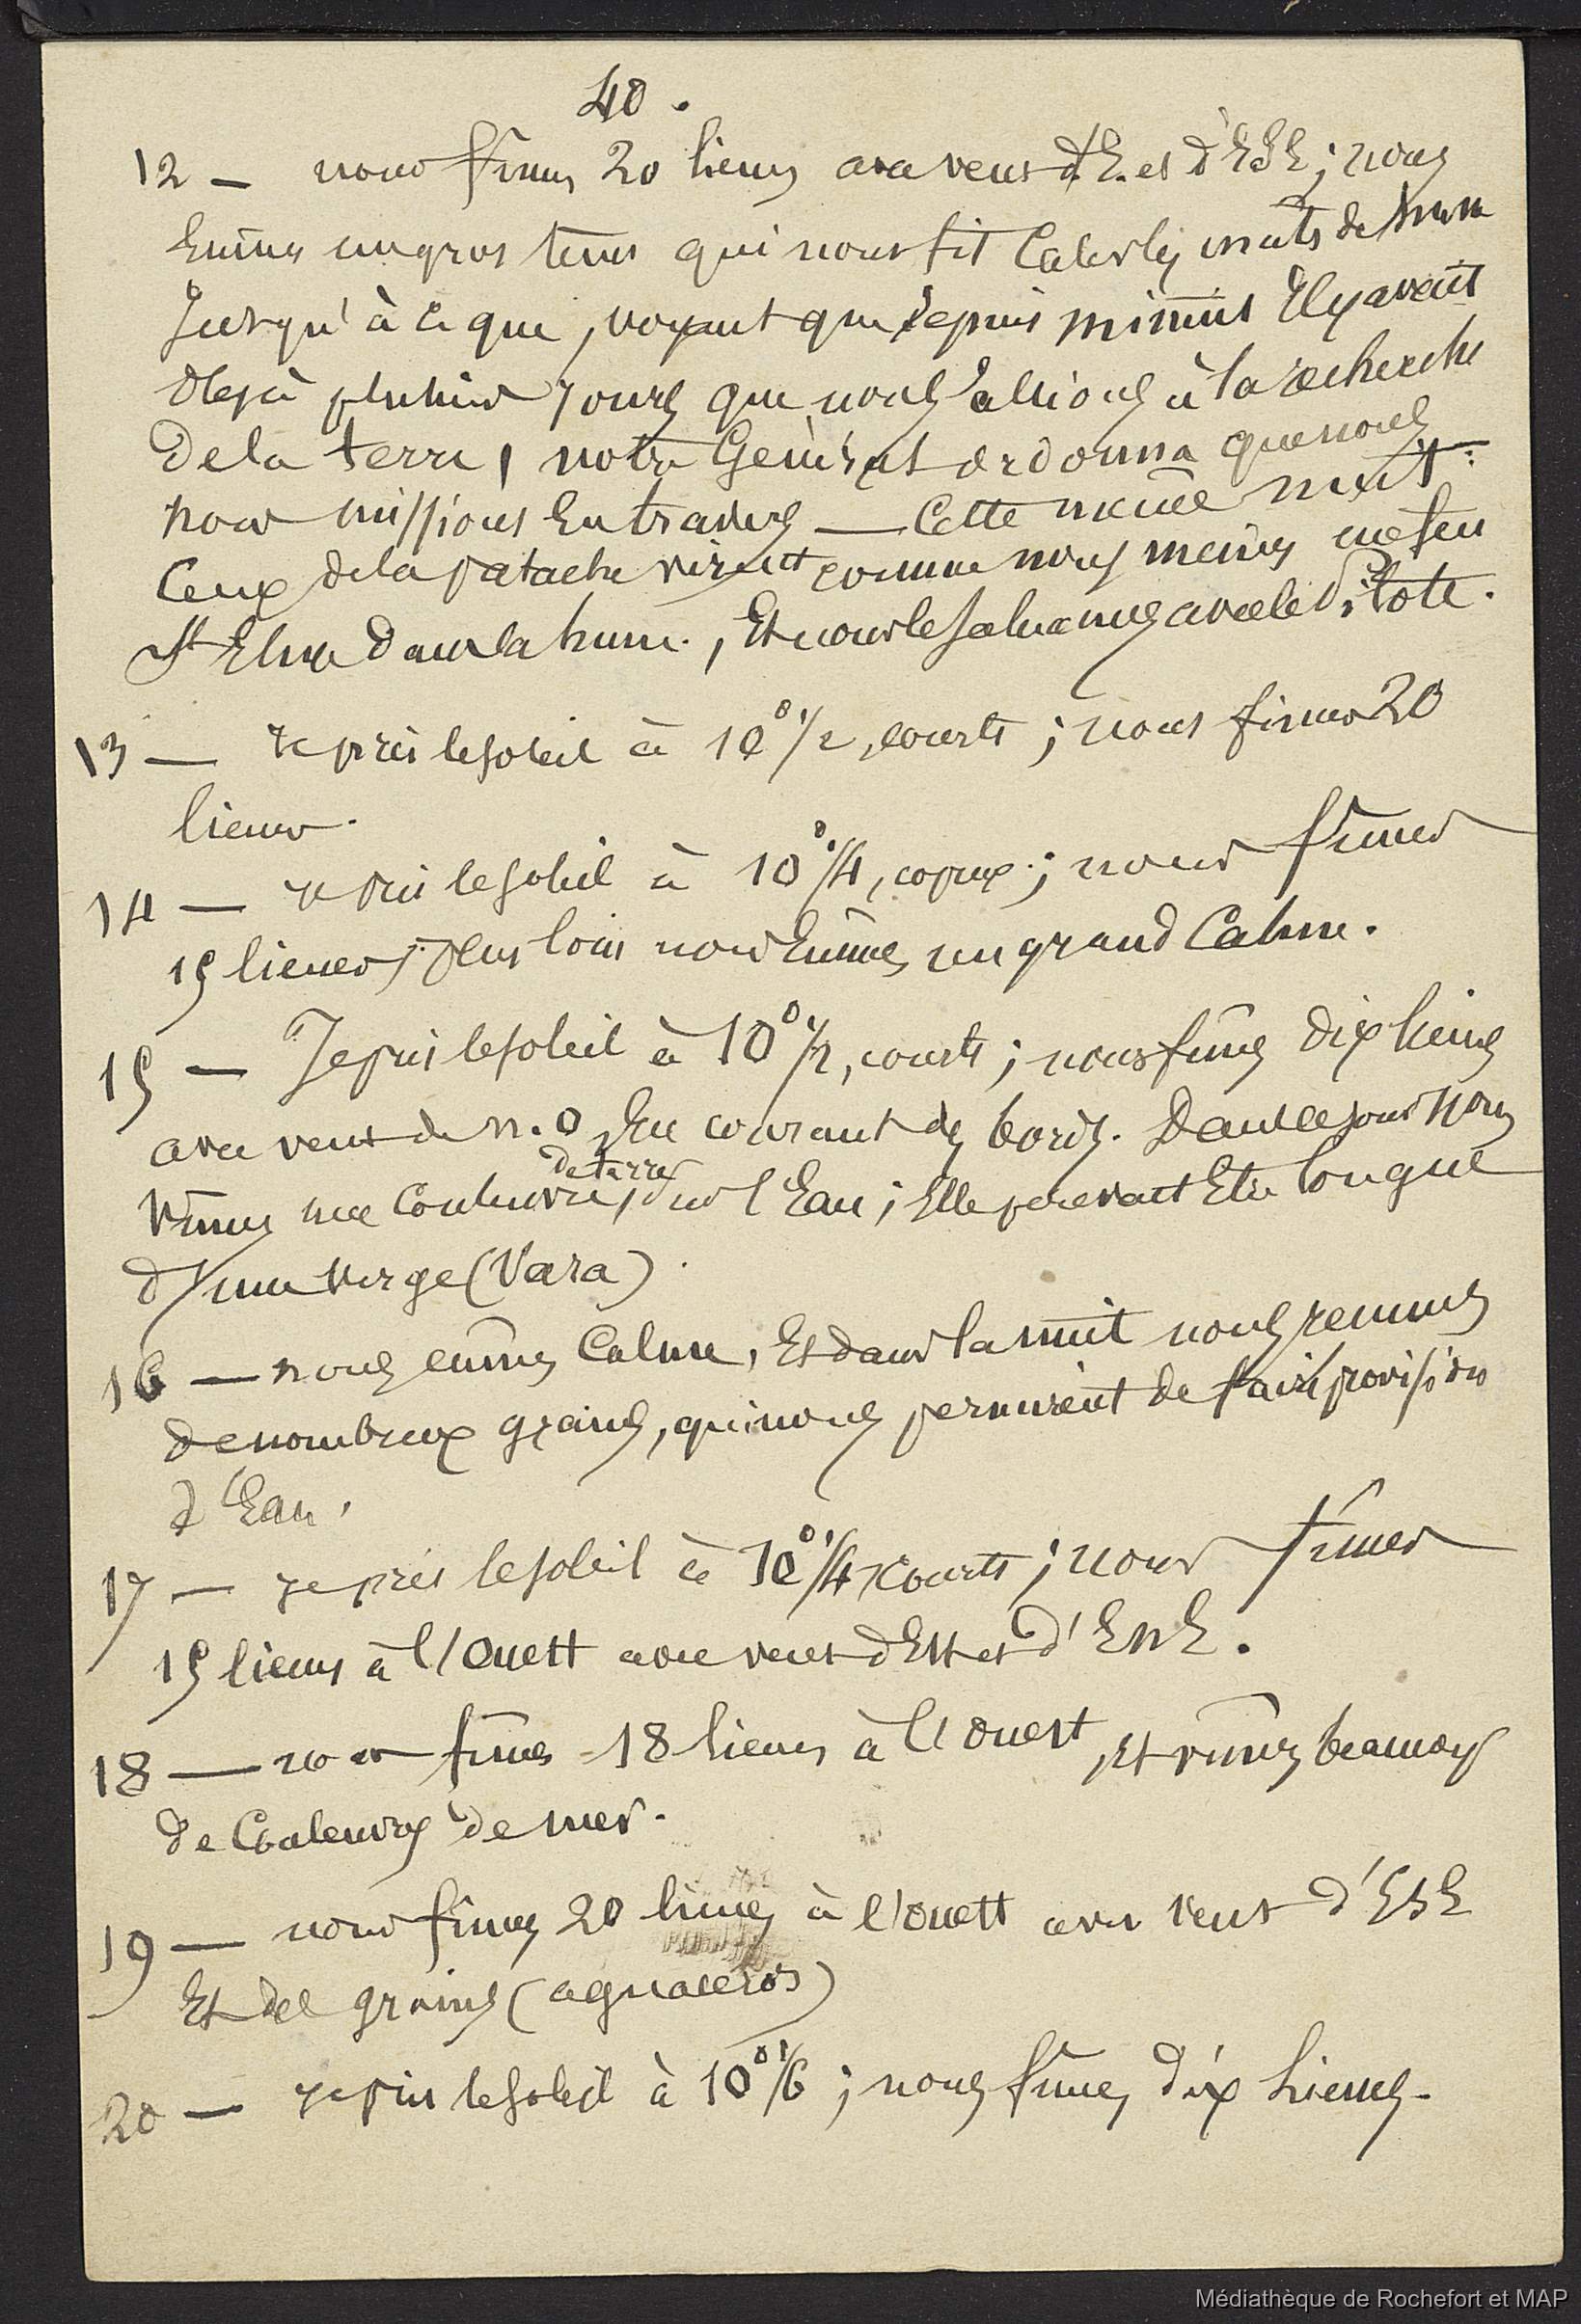 40.
12 — nous fîmes 20 lieues avec vent d'E. et d'ESE ; nous
eûmes un gros tems qui nous fit caler les mâts de hune
jusqu'à ce que, voyant que depuis minuit Il y avait
déjà plusieurs jours que nous allions à la recherche
de la terre, notre Général ordonna que nous
nous missions en travers — Cette même nuit
Ceux de la patache virent comme nous mêmes un feu
St Elme dans la hune, Et nous le saluâmes avec le Pilote.
13 — Je pris le soleil à 10° 1/2, courts ; nous fîmes 20
lieues.
14 — Je pris le soleil à 10° 1/4, copeux ; nous fîmes
15 lieues, plus loin nous Eûmes un grand Calme.
15 — Je pris le soleil à 10° 1/2, courts ; nous fîmes dix lieues
avec vent de N.O, En courant des bords. Dans ce jour nous
vîmes une Couleuvre de terre sur l'Eau ; Elle pouvait Etre longue
d'une Verge (Vara).
16 — nous eûmes Calme, Et dans la nuit nous reçumes
de nombreux grains, qui nous permirent de faire provision
d'Eau.
17 — Je pris le soleil à 10° 1/4, courts ; nous fîmes
15 lieues à l'Ouest avec vent d'Est et d'ENE.
18 — nous fîmes 18 lieues à l'Ouest, et vîmes beaucoup
de Couleuvres de mer.
19 — nous fîmes 20 lieues à l'Ouest avec vent d'ESE
Et des grains (aguaceros)
20 — Je pris le soleil à 10° 1/6 ; nous fîmes dix lieues.
Médiathèque de Rochefort et MAP